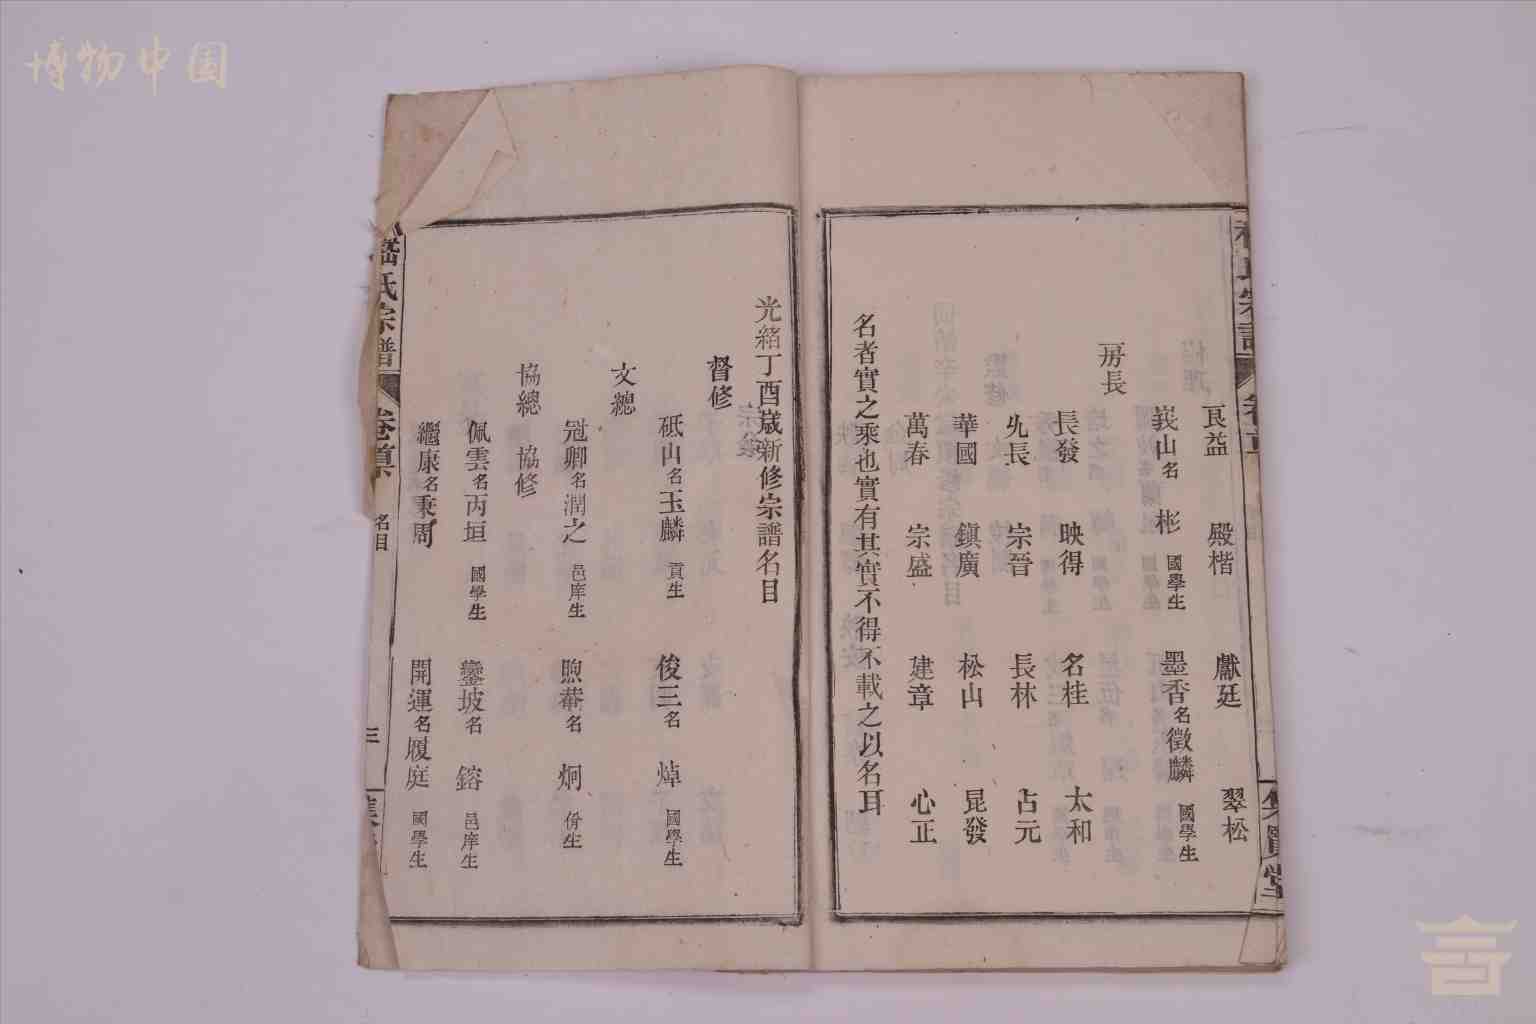 博物中国
良益 殿楷 獻廷 翠松
峩山名彬國學生 墨香名徵麟國學生
房長
長發 映得 名桂 太和
允長 宗晉 長林 占元
華國 鎮廣 松山 昆發
萬春 宗盛 建章 心正
名者實之乘也實有其實不得不載之以名耳
光緒丁酉歲新修宗譜名目
督修
砥山名玉麟貢生 俊三名焯國學生
文總
冠卿名潤之邑庠生 煦菴名炯佾生
協總 協修
佩雲名丙垣國學生 鑾坡名鎔邑庠生
繼康名秉周 開運名履庭國學生
嵇氏宗譜 卷首 名目